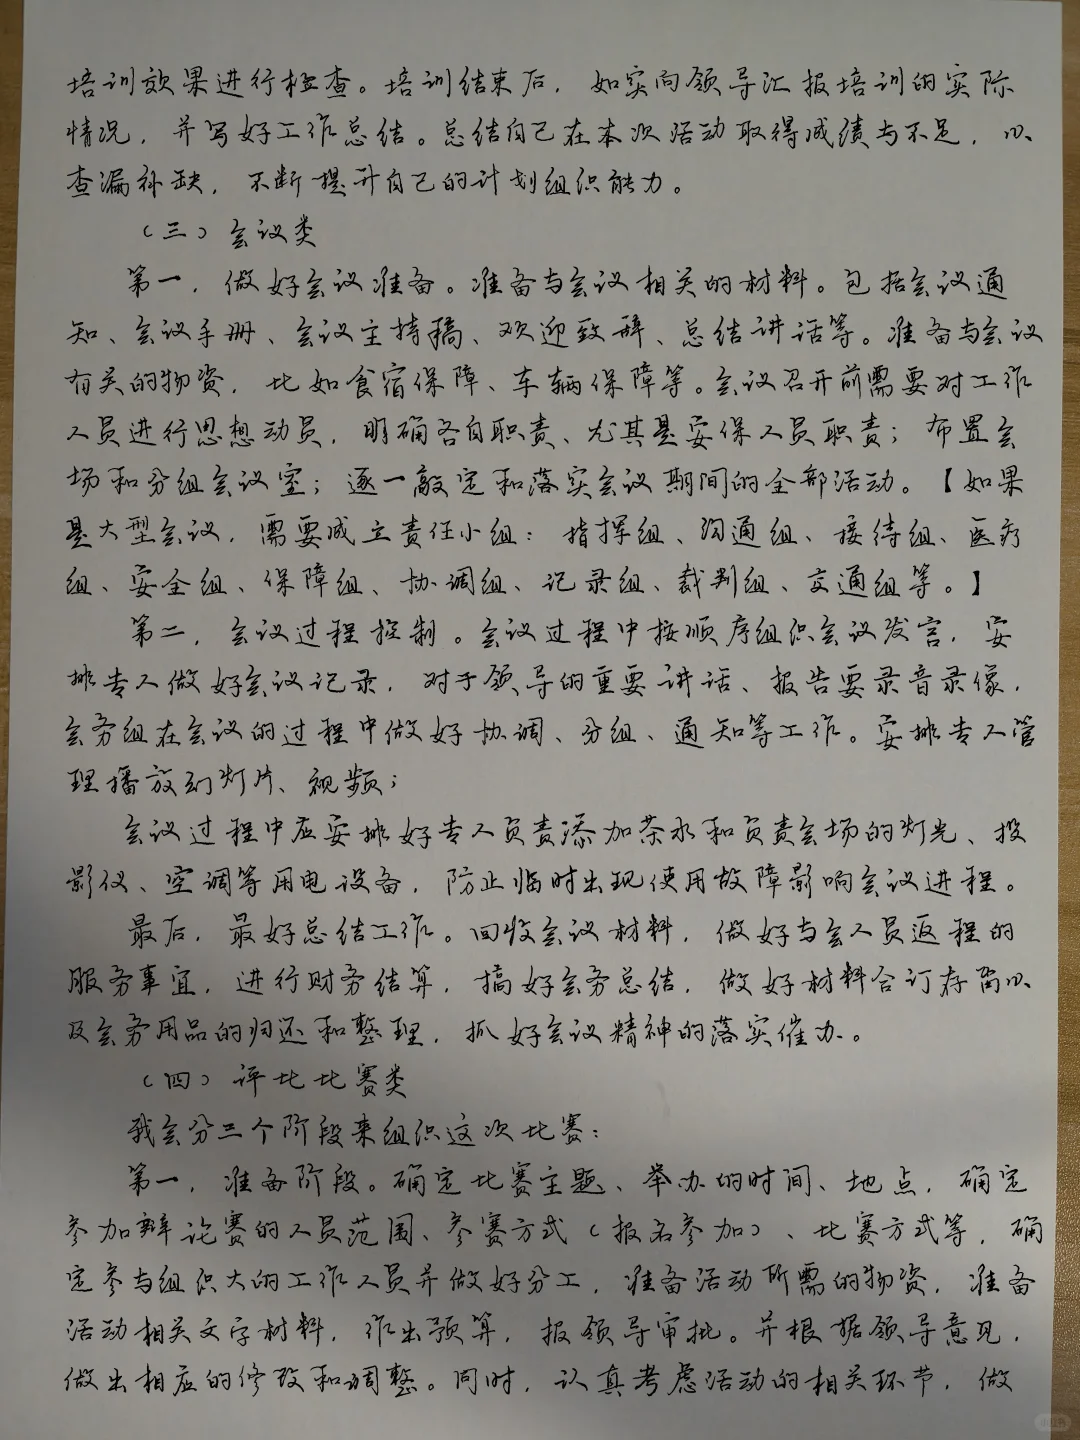 培训效果进行检查。培训结束后，如实向领导汇报培训的实际
情况，并写好工作总结。总结自己在本次活动取得成绩与不足，以
查漏补缺，不断提升自己的计划组织能力。
（三）会议类
第一，做好会议准备。准备与会议相关的材料。包括会议通
知、会议手册、会议主持稿、欢迎致辞、总结讲话等。准备与会议
有关的物资，比如食宿保障、车辆保障等。会议召开前需要对工作
人员进行思想动员，明确各自职责、尤其是安保人员职责；布置会
场和分组会议室；逐一敲定和落实会议期间的全部活动。【如果
是大型会议，需要成立责任小组：指挥组、沟通组、接待组、医疗
组、安全组、保障组、协调组、记录组、裁判组、交通组等。】
第二，会议过程控制。会议过程中按顺序组织会议发言，安
排专人做好会议记录，对于领导的重要讲话、报告要录音录像，
会务组在会议的过程中做好协调、分组、通知等工作。安排专人管
理播放幻灯片、视频；
会议过程中应安排好专人负责添加茶水和负责会场的灯光、投
影仪、空调等用电设备，防止临时出现使用故障影响会议进程。
最后，最好总结工作。回收会议材料，做好与会人员返程的
服务事宜，进行财务结算，搞好会务总结，做好材料合订存留以
及会务用品的归还和整理，抓好会议精神的落实催办。
（四）评比比赛类
我会分三个阶段来组织这次比赛：
第一，准备阶段。确定比赛主题、举办的时间、地点，确定
参加辩论赛的人员范围、参赛方式（报名参加）、比赛方式等，确
定参与组织大的工作人员并做好分工，准备活动所需的物资，准备
活动相关文字材料，作出预算，报领导审批。并根据领导意见，
做出相应的修改和调整。同时，认真考虑活动的相关环节，做